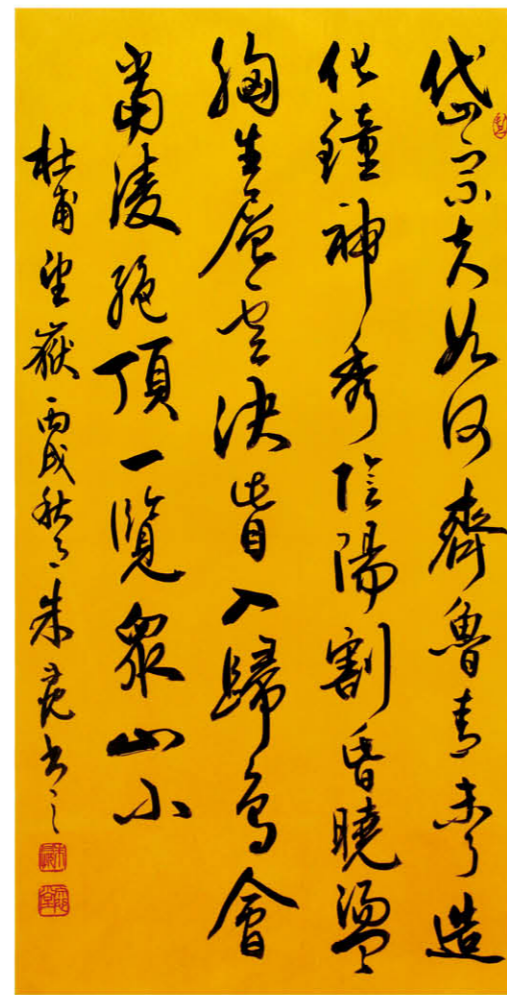 岱宗夫如何齊魯青未了造
化鐘神秀陰陽割昏曉盪
胸生層雲決眥入歸鳥會
當凌絕頂一覽眾山小
杜甫望嶽丙戌秋月朱 書之